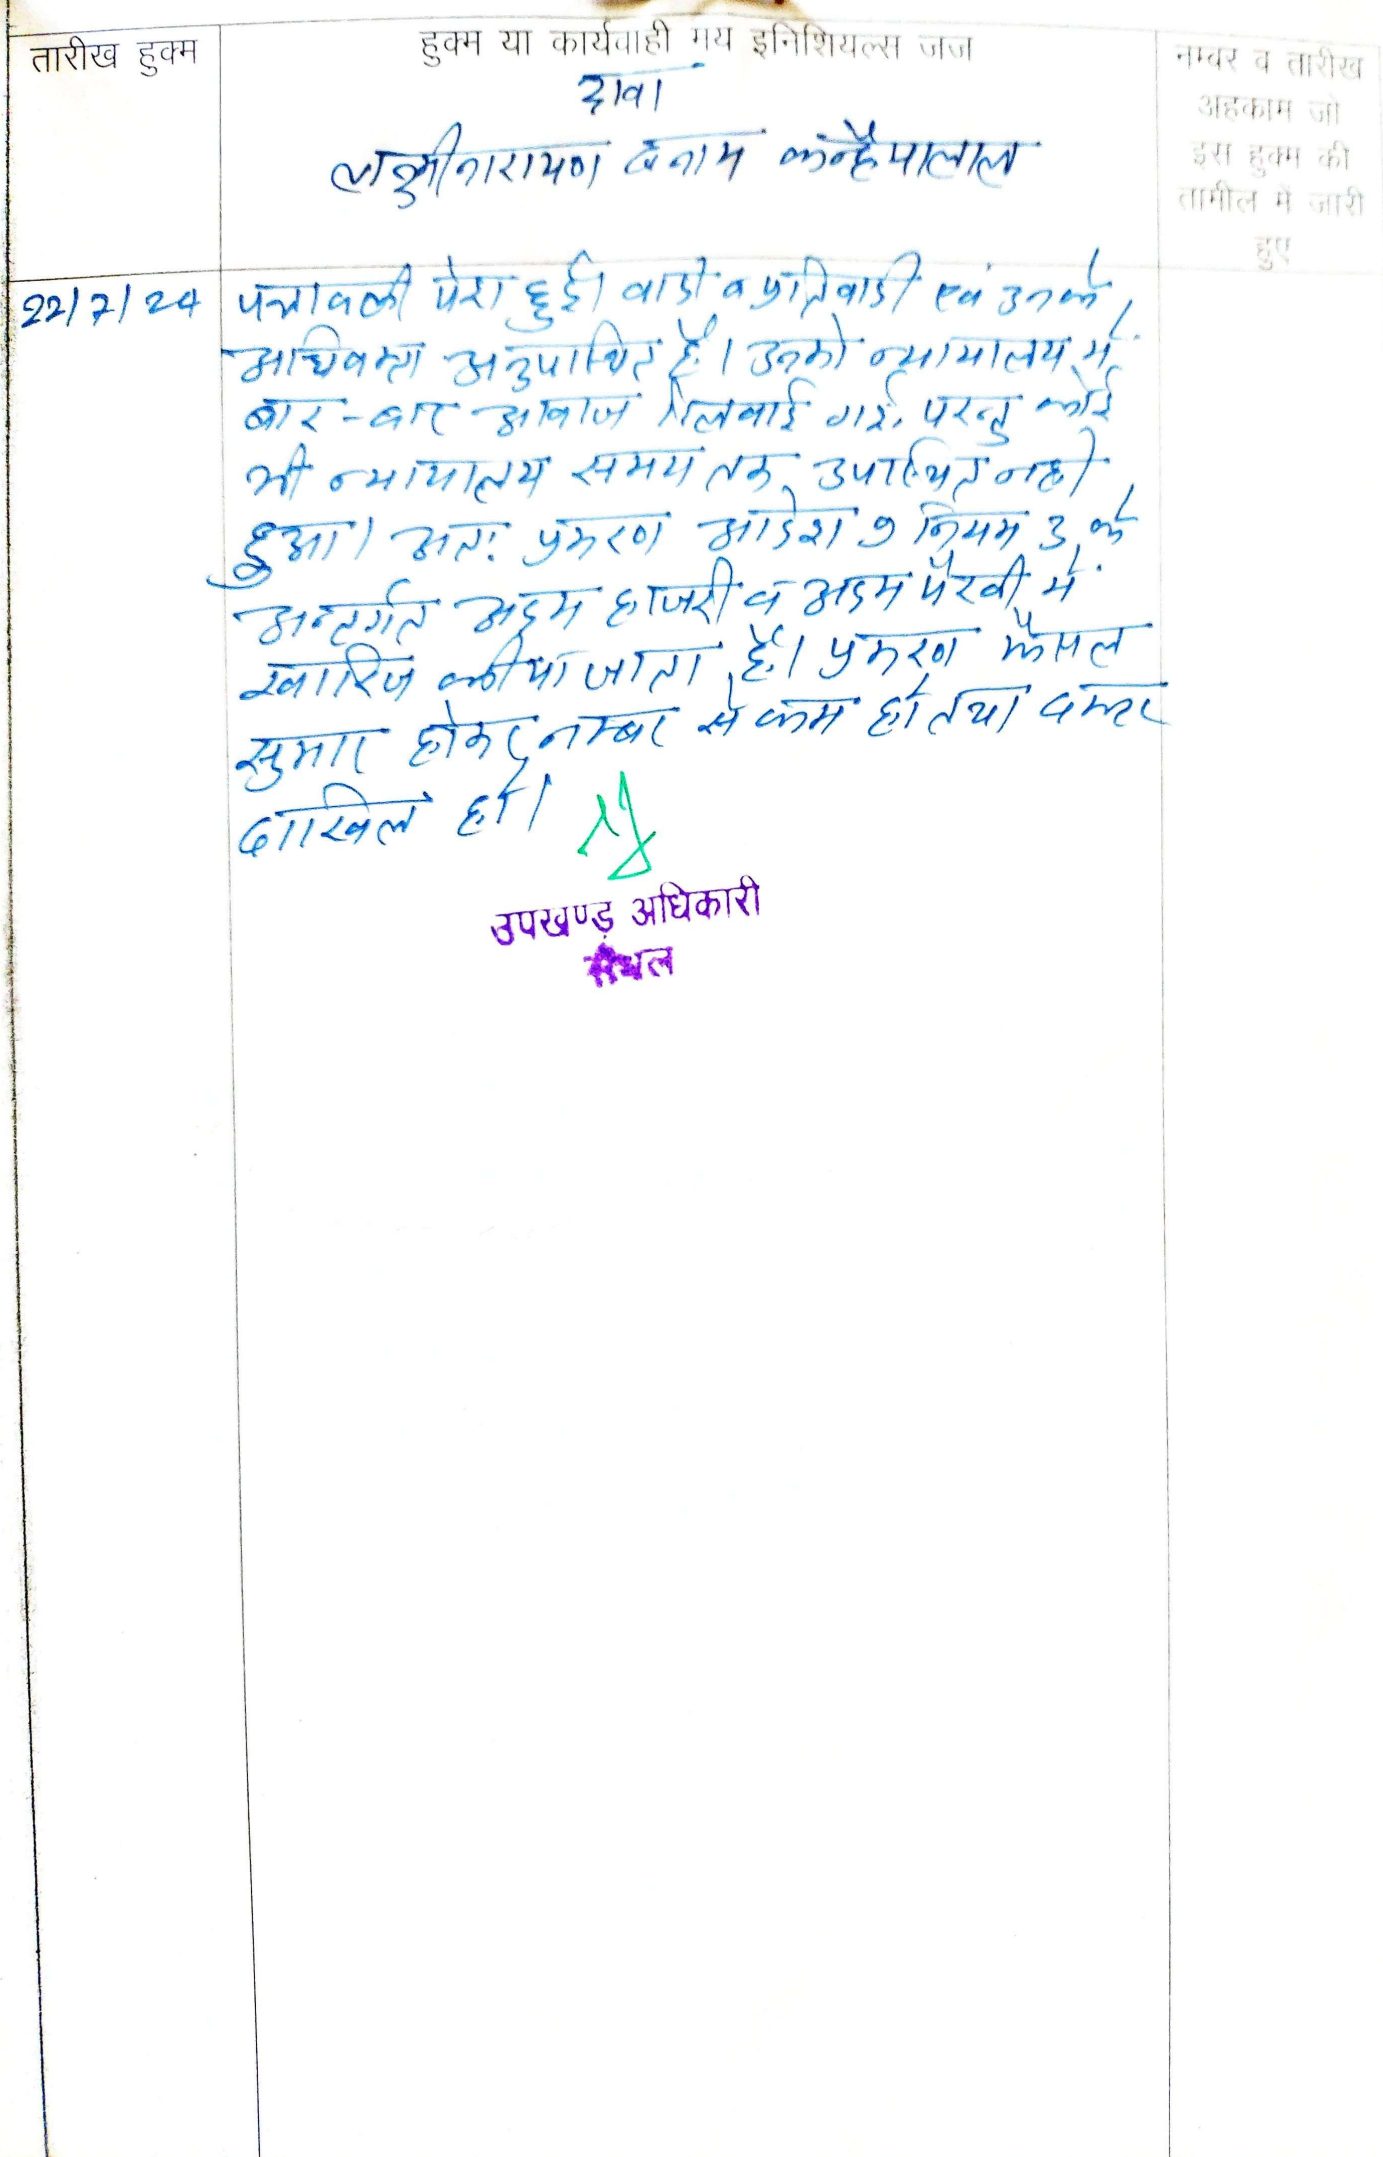 तारीख हुक्म
हुक्म या कार्यवाही मय इनिशियल्स जज
नम्बर व तारीख
अहकाम जो
इस हुक्म की
तामील में जारी
हुए
दावा
लक्ष्मीनारायण बनाम कन्हैयालाल
22/7/24
पत्रावली पेश हुई। वादी व प्रतिवादी एवं उनके
अधिवक्ता अनुपस्थित है। उनको न्यायालय में
बार-बार आवाज दिलवाई गई, परन्तु कोई
भी न्यायालय समय तक उपस्थित नही
हुआ। अतः प्रकरण आदेश 9 नियम 3 के
अन्तर्गत अदम हाजरी व अदम पैरवी में
खारिज कीया जाता है। प्रकरण फैसल
सुमार होकर नम्बर से कम हो तथा दफ्तर
दाखिल हो।
उपखण्ड़ अधिकारी